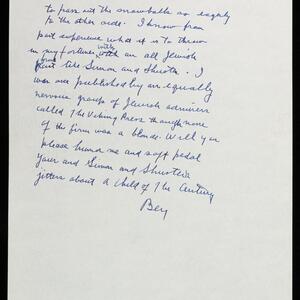 to pass out the snowballs as eagerly
to the other side. I know from
past experience what it is to throw
in my fortunes with an all Jewish
firm like Simon and Shuster. I
was once published by an equally
nervous group of Jewish admirers
called The Viking Press though none
of the firm was a blonde. Will you
please humor me and soft pedal
your and Simon and Shuster's
jitters about a Child of The Century
Ben